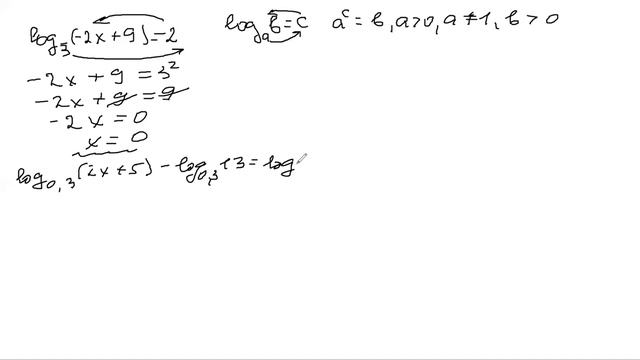 log₃(-2x+9)=2
logₐb=c aᶜ=b, a>0, a≠1, b>0
-2x+9=3²
-2x+9=9
-2x=0
x=0
log₀,₃(2x+5)-log₀,₃13=log